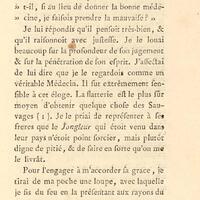 » t-il, si au lieu de donner la bonne méde-
» cine, je faisois prendre la mauvaise? »
Je lui répondis qu'il pensoit très-bien, &
qu'il raisonnoit avec justesse. Je le louai
beaucoup sur la profondeur de son jugement
& sur la pénétration de son esprit. J'affectai
de lui dire que je le regardois comme un
véritable Médecin. Il fut extrêmement sen-
sible à cet éloge. La flatterie est le plus sûr
moyen d'obtenir quelque chose des Sau-
vages [1]. Je le priai de représenter à ses
freres que le Jongleur qui étoit venu dans
leur pays n'étoit point sorcier, mais plutôt
digne de pitié, & de faire en sorte qu'on me
le livrât.
Pour l'engager à m'accorder sa grace, je
tirai de ma poche une loupe, avec laquelle
je fis du feu en la présentant aux rayons du